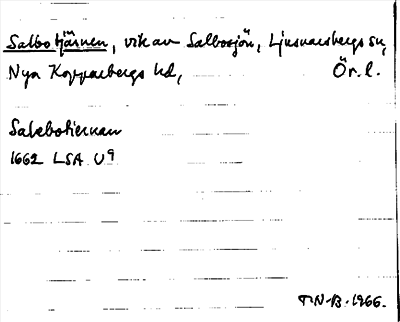 Salbotjärnen, vik av Salbosjön, Ljusnarsbergs sn,
Nya Kopparbergs hd, Ör. l.
Salebotiernan
1662 LSA U9
T.N-B. 1966.